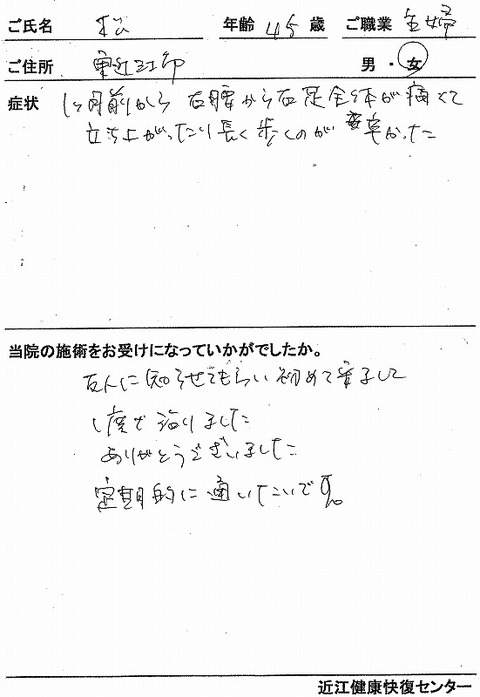 ご氏名 松 年齢 45 歳 ご職業 主婦
ご住所 東近江市 男・女
症状 1ヶ月前から 右腰から右足全体が痛くて
立ち上がったり長く歩くのが辛かった
当院の施術をお受けになっていかがでしたか。
友人に知らせてもらい初めて来まして
1度で治りました
ありがとうございました
定期的に通いたいです。
近江健康快復センター